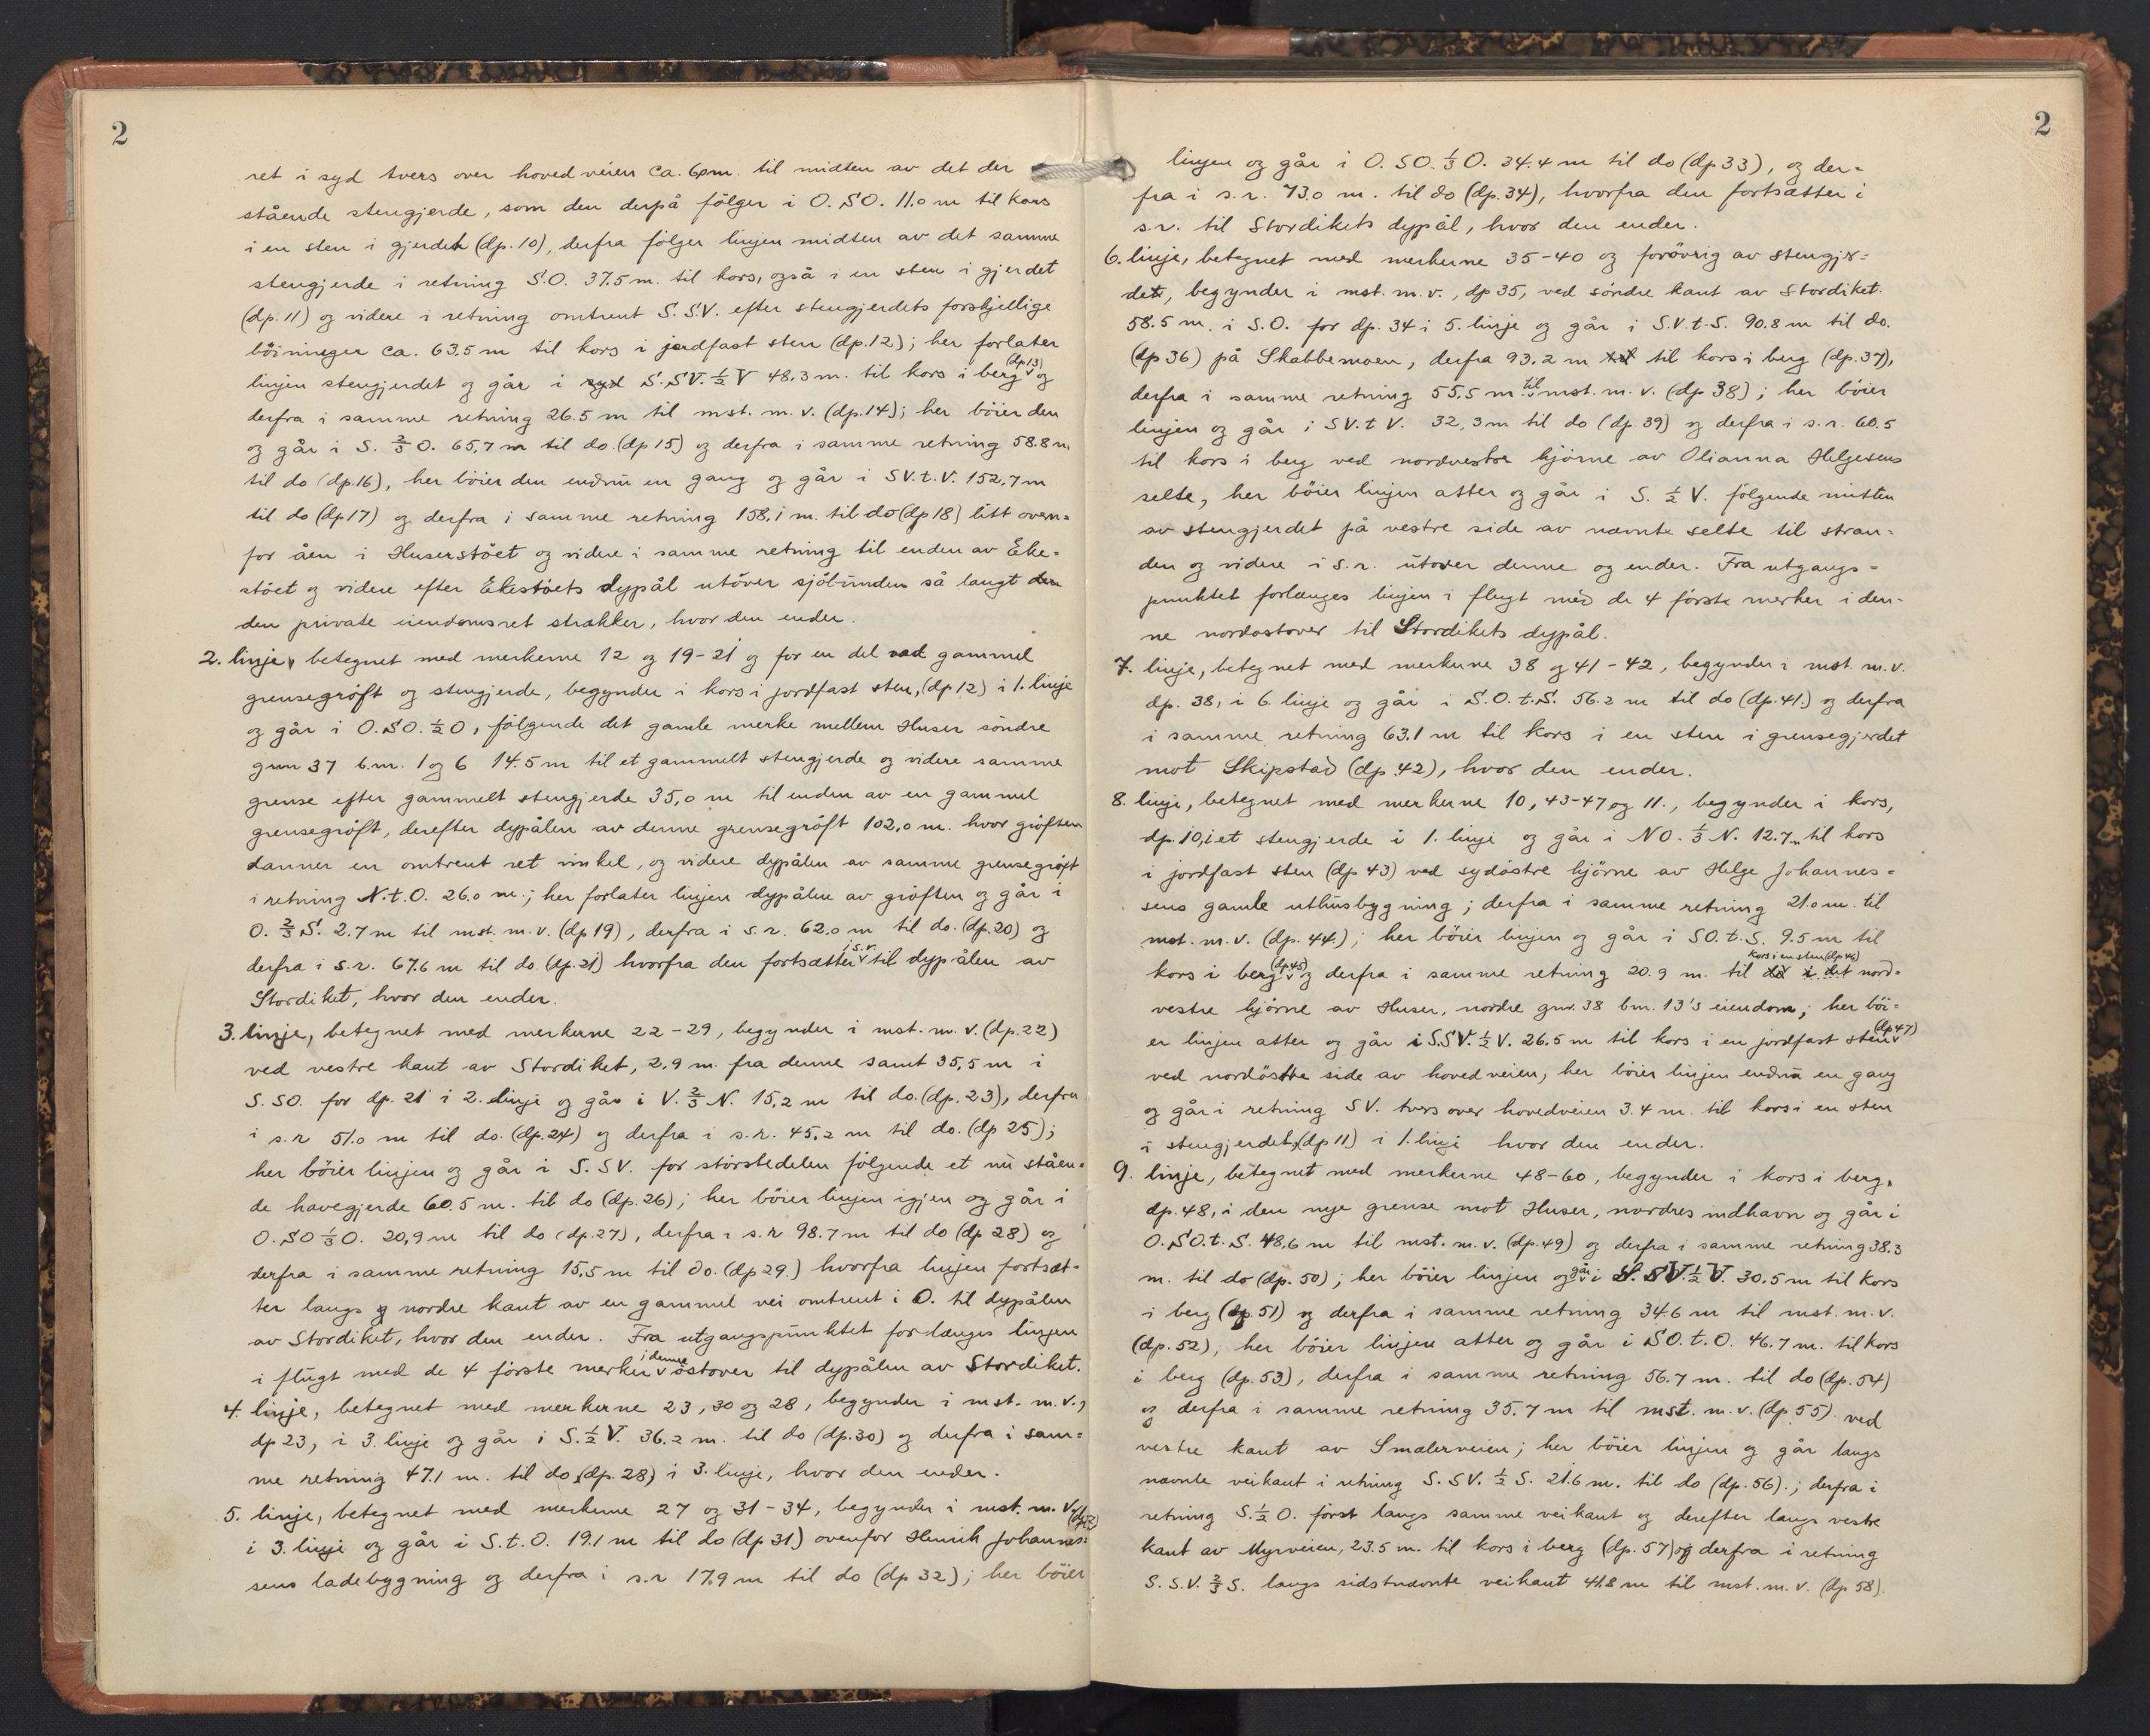 2
ret i syd tvers over hovedveien ca. 6,0 m. til midten av det der
stående stengjerde, som den derpå følger i O. SO. 11.0 m til kors
i en sten i gjerdet (dp. 10), derfra følger linjen midten av det samme
stengjerde i retning S.O. 37.5 m. til kors, også i en sten i gjerdet
(dp. 11) og videre i retning omtrent S. S.V. efter stengjerdets forskjellige
böininger ca. 63.5 m til kors i jordfast sten (dp. 12); her forlater
linjen stengjerdet og går i syd S. SV. ½ V 48.3 m. til kors i berg (dp 13) og
derfra i samme retning 26.5 m til mst. m. v. (dp. 14); her böier den
og går i S. ⅔ O. 65,7 m til do. (dp 15) og derfra i samme retning 58.8 m.
til do (dp. 16), her böier den endnu en gang og går i SV. t. V. 152,7 m
til do (dp 17) og derfra i samme retning 158,1 m. til do (dp 18) litt oven=
for åen i Huserstöet og videre i samme retning til enden av Eke=
stöet og videre efter Ekestöets dypål utöver sjöbunden så langt den
den private eiendomsret strækker, hvor den ender.
2. linje, betegnet med merkerne 12 og 19-21 og for en del ved gammel
grensegröft og stengjerde, begynder i kors i jordfast sten, (dp 12) i 1. linje
og går i O. SO. ½ O, følgende det gamle merke mellem Huser söndre
grnr 37 b.nr. 1 og 6 14.5 m til et gammelt stengjerde og videre samme
grense efter gammelt stengjerde 35,0 m til enden av en gammel
grensegröft, derefter dypålen av denne grensegröft 102,0 m. hvor gröften
danner en omtrent ret vinkel, og videre dypålen av samme grensegröft
i retning N. t. O. 26.0 m.; her forlater linjen dypålen av gröften og går i
O. ⅔ S. 2.7 m til mst. m. v. (dp 19), derfra i s. r. 62.0 m til do. (dp. 20) og
derfra i s.r. 67.6 m til do. (dp. 21) hvorfra den fortsætter i s.r. til dypålen av
Stordiket, hvor den ender.
3. linje, betegnet med merkerne 22-29, begynder i mst. m. v. (dp. 22)
ved vestre kant av Stordiket, 2,9 m. fra denne samt 35,5 m i
S. SO. for dp. 21 i 2. linje og går i V. ⅔ N. 15,2 m til do. (dp. 23), derfra
i s.r 51.0 m til do. (dp. 24) og derfra i s.r. 45,2 m til do. (dp 25);
her böier linjen og går i S. SV. for störstedelen følgende et nu ståen=
de havegjerde 60.5 m. til do (dp. 26); her böier linjen igjen og går i
O. SO ⅓ O. 20,9 m til do (dp. 27), derfra i s.r 98.7 m til do (dp 28) og
derfra i samme retning 15,5 m til do. (dp 29.) hvorfra linjen fortsæt=
ter langs nordre kant av en gammel vei omtrent i O. til dypålen
av Stordiket, hvor den ender. Fra utgangspunktet forlænges linjen
i flugt med de 4 förste merker i denne östover til dypålen av Stordiket.
4. linje, betegnet med merkerne 23, 30 og 28, begynder i mst. m. v.,
dp 23, i 3. linje og går i S. ½ V. 36.2 m. til do (dp. 30) og derfra i sam=
me retning 47.1 m. til do (dp. 28) i 3. linje, hvor den ender.
5. linje, betegnet med merkerne 27 og 31-34, begynder i mst. m. v.
i 3. linje og går i S. t. O. 19.1 m til do (dp 31) ovenfor Henrik Johannes=
sens ladebygning og derfra i s.r 17.9 m til do (dp 32); her böier
2
linjen og går i O. SO. ⅓ O. 34.4 m til do (dp 33), og der=
fra i s.r. 73.0 m. til do (dp. 34), hvorfra den fortsætter i
s.r. til Stordikets dypål, hvor den ender.
6. linje, betegnet med merkerne 35-40 og forövrig av stengjer=
det, begynder i mst. m. v., dp 35, ved söndre kant av Stordiket.
58.5 m. i S.O. for dp. 34 i 5. linje og går i S.V. t. S. 90.8 m til do.
(dp 36) på Skabbemoen, derfra 93.2 m til kors i berg (dp. 37),
derfra i samme retning 55.5 m til mst. m. v. (dp 38); her böier
linjen og går i SV. t V. 32,3 m til do (dp. 39) og derfra i s.r. 60.5
til kors i berg ved nordvestre hjörne av Olianna Helgesens
selte, her böier linjen atter og går i S. ½ V. følgende mitten
av stengjerdet på vestre side av nævnte selte til stran=
den og videre i s.r. utover denne og ender. Fra utgangs=
punktet forlænges linjen i flugt med de 4 förste merker i den=
ne nordostover til Stordikets dypål.
7. linje, betegnet med merkerne 38 og 41-42, begynder i mst. m. v.
dp. 38, i 6. linje og går i S.O. t. S. 56.2 m til do (dp. 41.) og derfra
i samme retning 63.1 m til kors i en sten i grensegjerdet
mot Skipstad (dp. 42), hvor den ender.
8. linje, betegnet med merkerne 10, 43-47 og 11., begynder i kors,
dp. 10, i et stengjerde i 1. linje og går i NO. ⅓ N. 12.7 m til kors
i jordfast sten (dp 43) ved sydöstre hjörne av Helge Johannes=
sens gamle uthusbygning; derfra i samme retning 21.0 m. til
mst. m. v. (dp. 44.); her böier linjen og går i SO. t. S. 9.5 m til
kors i berg (dp 45) og derfra i samme retning 20.9 m. til kors i en sten (dp 46) i det nord=
vestre hjörne av Huser, nordre gnr. 38 bnr. 13's eiendom; her böi=
er linjen atter og går i S.SV. ½ V. 26.5 m til kors i en jordfast sten (dp 47)
ved nordöstre side av hovedveien, her böier linjen endnu en gang
og går i retning SV. tvers over hovedveien 3.4 m. til kors i en sten
i stengjerdet, (dp 11) i 1. linje hvor den ender.
9. linje, betegnet med merkerne 48-60, begynder i kors i berg,
dp. 48, i den nye grense mot Huser, nordres indhavn og går i
O. SO. t. S. 48,6 m til mst. m. v. (dp. 49) og derfra i samme retning 38.3
m. til do (dp. 50); her böier linjen og går i S. SV. ½ V. 30.5 m til kors
i berg (dp 51) og derfra i samme retning 34.6 m til mst. m. v.
(dp. 52); her böier linjen atter og går i SO. t. O. 46.7 m. til kors
i berg (dp. 53), derfra i samme retning 56.7 m. til do (dp. 54)
og derfra i samme retning 35.7 m til mst. m. v. (dp 55) ved
vestre kant av Smalerveien; her böier linjen og går langs
nævnte veikant i retning S. SV. ½ S. 21.6 m. til do (dp. 56).; derfra i
retning S. ½ O. först langs samme veikant og derefter langs vestre
kant av Myrveien, 23.5 m. til kors i berg (dp. 57) og derfra i retning
S. S.V. ⅔ S. langs sidstnævnte veikant 41.8 m til mst. m. v. (dp 58).